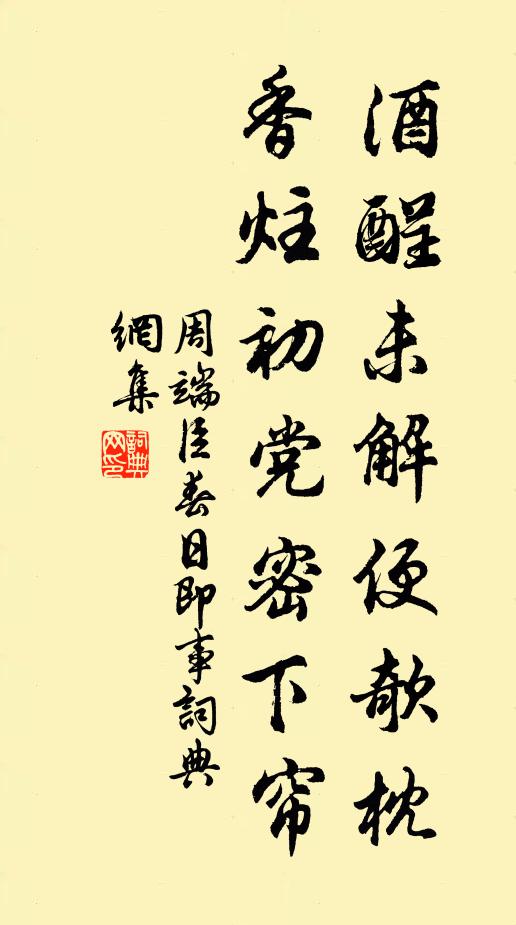 酒酲未解便欹枕
香炷初党密下帘
周端臣春日即事詞典
網集
詞典
网印